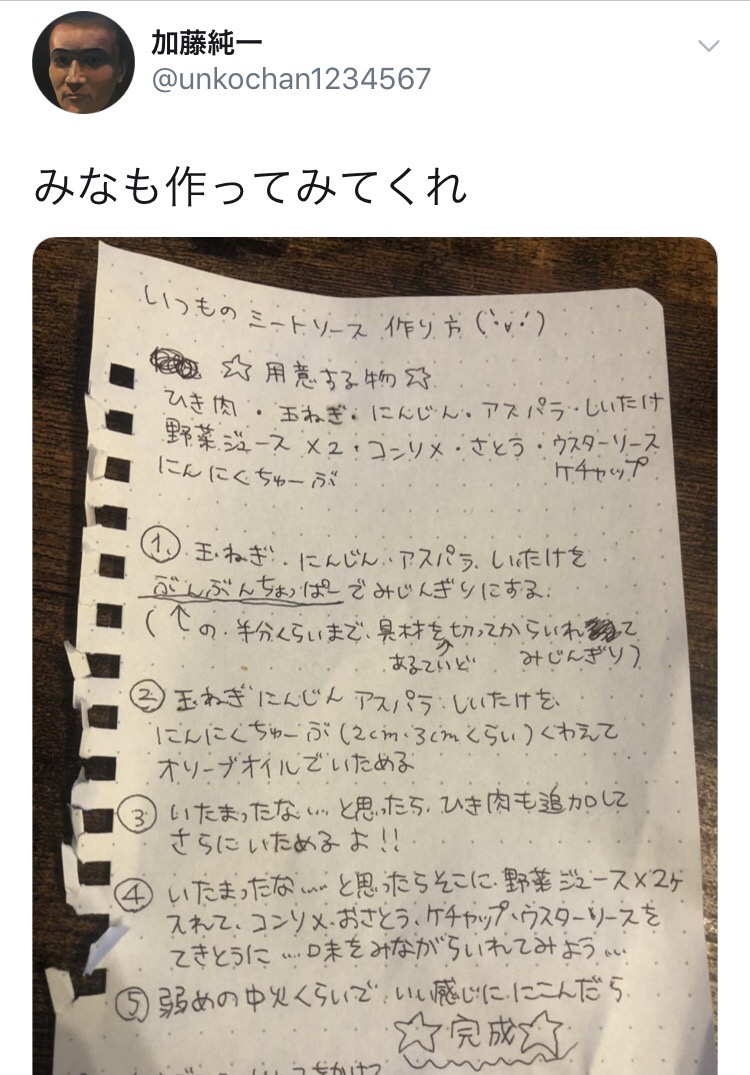 加藤純一
@unkochan1234567
みなも作ってみてくれ
いつもの ミートソース 作り方 (˙ᵥ˙)
☆ 用意する物 ☆
ひき肉・玉ねぎ・にんじん・アスパラ・しいたけ
野菜ジュース×2・コンソメ・さとう・ウスターソース
にんにくちゅーぶ ケチャップ
① 玉ねぎ、にんじん、アスパラ、しいたけを
ぶんぶんちょっぱーでみじんぎりにする。
(↑の半分くらいまで、具材を切ってからいれて
あるていど みじんぎり)
② 玉ねぎ にんじん アスパラ しいたけを
にんにくちゅーぶ(2cm・3cmくらい)くわえて
オリーブオイルでいためる
③ いたまったな… と思ったら、ひき肉も追加して
さらにいためるよ!!
④ いたまったな…… と思ったらそこに野菜ジュース×2ヶ
入れて、コンソメ・おさとう、ケチャップ、ウスターソースを
てきとうに …味をみながらいれてみよう…
⑤ 弱めの中火くらいで いい感じに にこんだら
☆完成☆